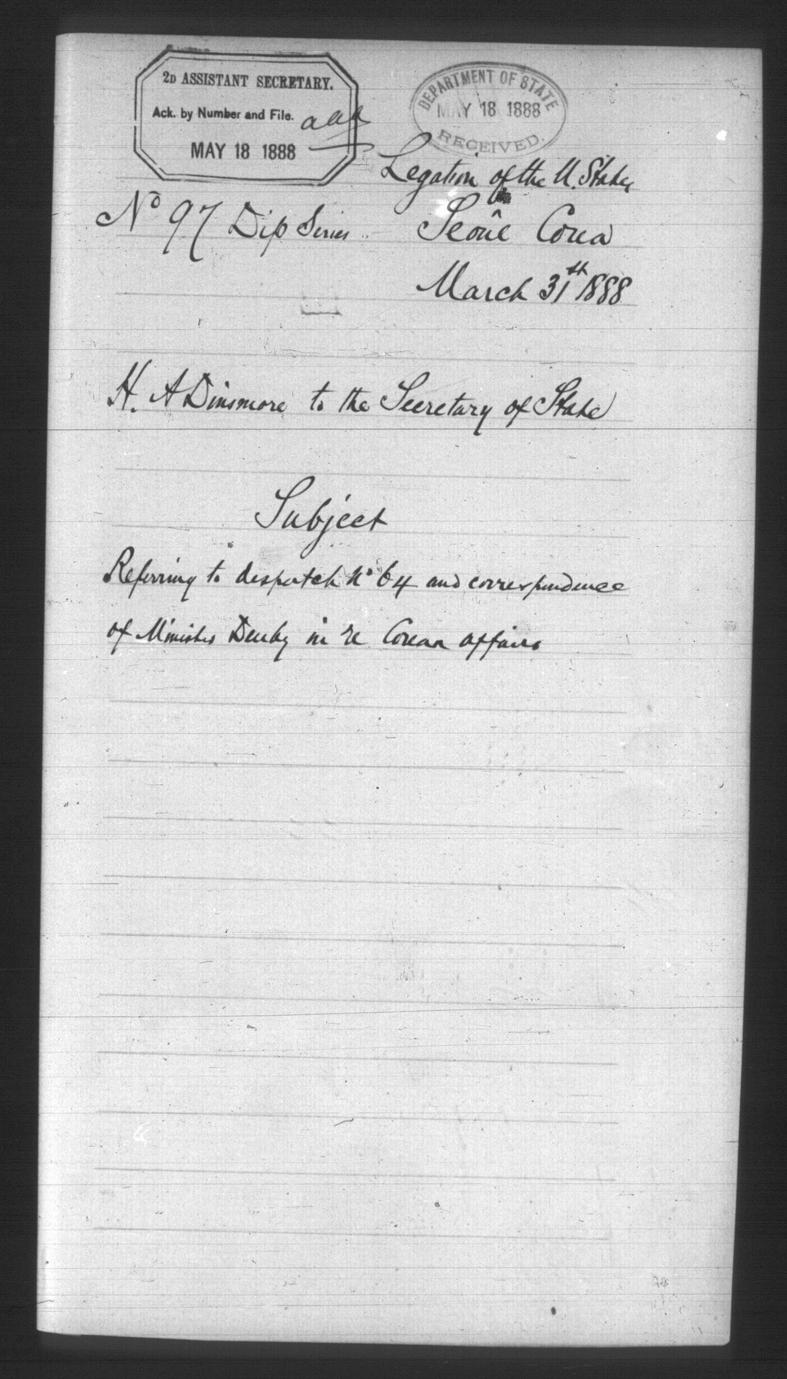 2D ASSISTANT SECRETARY.
Ack. by Number and File.
MAY 18 1888
DEPARTMENT OF STATE
MAY 18 1888
RECEIVED.
Legation of the U. States
Seoul Corea
No 97 Dip Series
March 31st 1888
H. A Dinsmore to the Secretary of State
Subject
Referring to despatch No 64 and correspondence
of Minister Denby in re Corean affairs